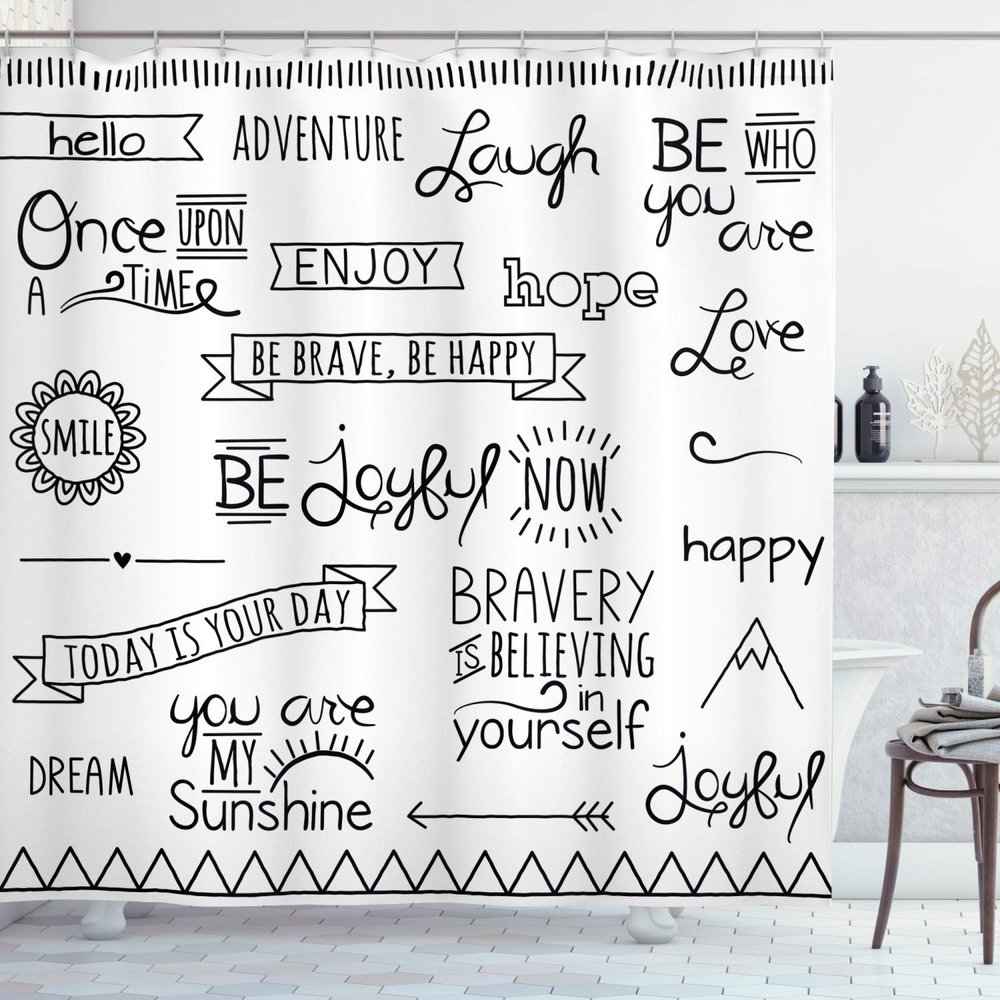 hello
ADVENTURE
Laugh
BE WHO
you are
Once UPON
A TIME
ENJOY
hope
BE BRAVE, BE HAPPY
Love
SMILE
BE Joyful NOW
happy
TODAY IS YOUR DAY
BRAVERY
IS BELIEVING
in
yourself
you are
MY
Sunshine
DREAM
Joyful